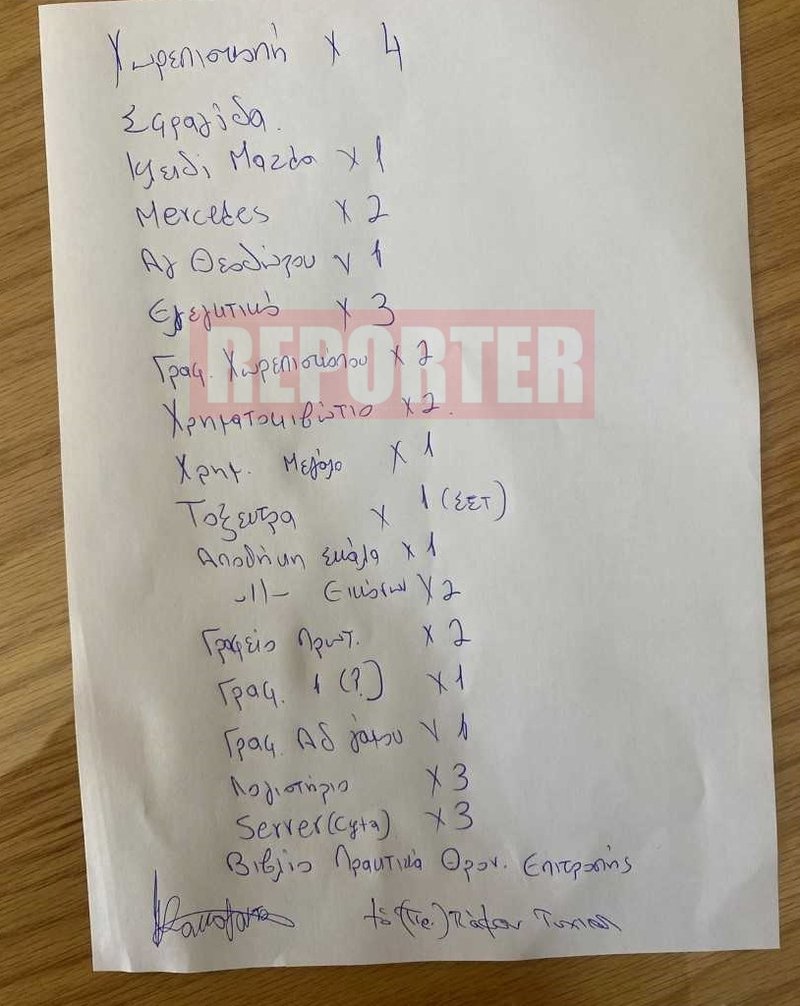 Χωρεπισκοπή x 4
Σφραγίδα.
Κλειδί Mazda x 1
Mercedes x 2
Αγ Θεοδώρου x 1
Ελεγκτικό x 3
REPORTER
Γραφ. Χωρεπισκόπου x 2
Χρηματοκιβώτιο x 2.
Χρημ. Μεγάλο x 1
Τοξευτρα x 1 (ΣΕΤ)
Αποθήκη Σκάλα x 1
-//- Εικόνων x 2
Γραφείο Πρωτ. x 2
Γραφ. 1 (?) x 1
Γραφ. Αδ γάμου x 1
Λογιστήριο x 3
Server(Cyta) x 3
Βιβλίο Πρακτικά Θρον. Επιτροπής
Πάφου Τυχικός